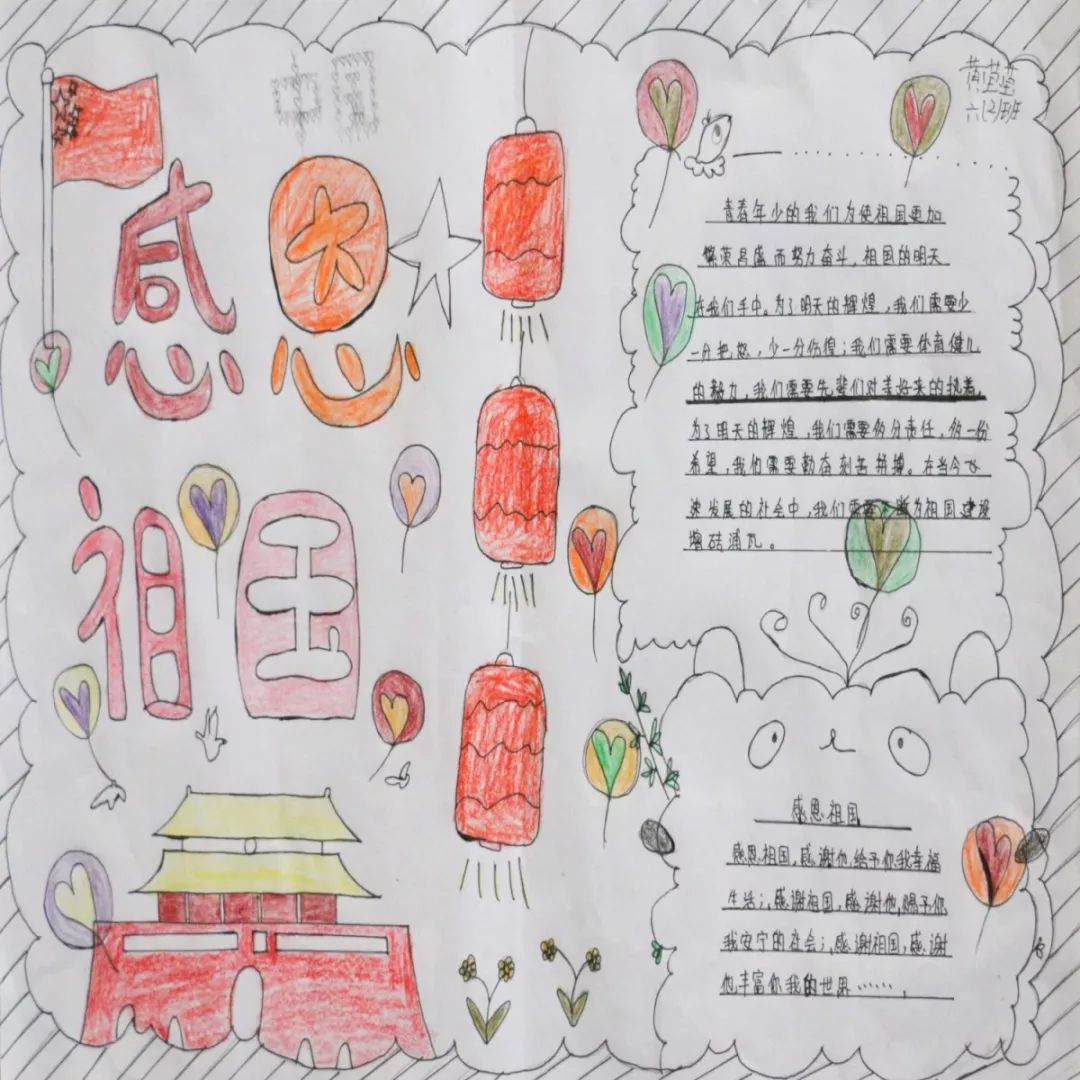 中国
感恩
祖国
黄莹莹
六(2)班
青春年少的我们为使祖国更加
繁荣昌盛而努力奋斗，祖国的明天
在我们手中。为了明天的辉煌，我们需要少
一分抱怨，少一分彷徨；我们需要体育健儿
的毅力，我们需要先辈们对美好来的执着。
为了明天的辉煌，我们需要多分责任，多一份
希望，我们需要勤奋刻苦拼搏。在当今飞
速发展的社会中，我们需要 为祖国建设
增砖添瓦。
感恩祖国
感恩祖国，感谢他，给予你我幸福
生活；感谢祖国，感谢他，赐予你
我安宁的社会；感谢祖国，感谢
他丰富你我的世界……。